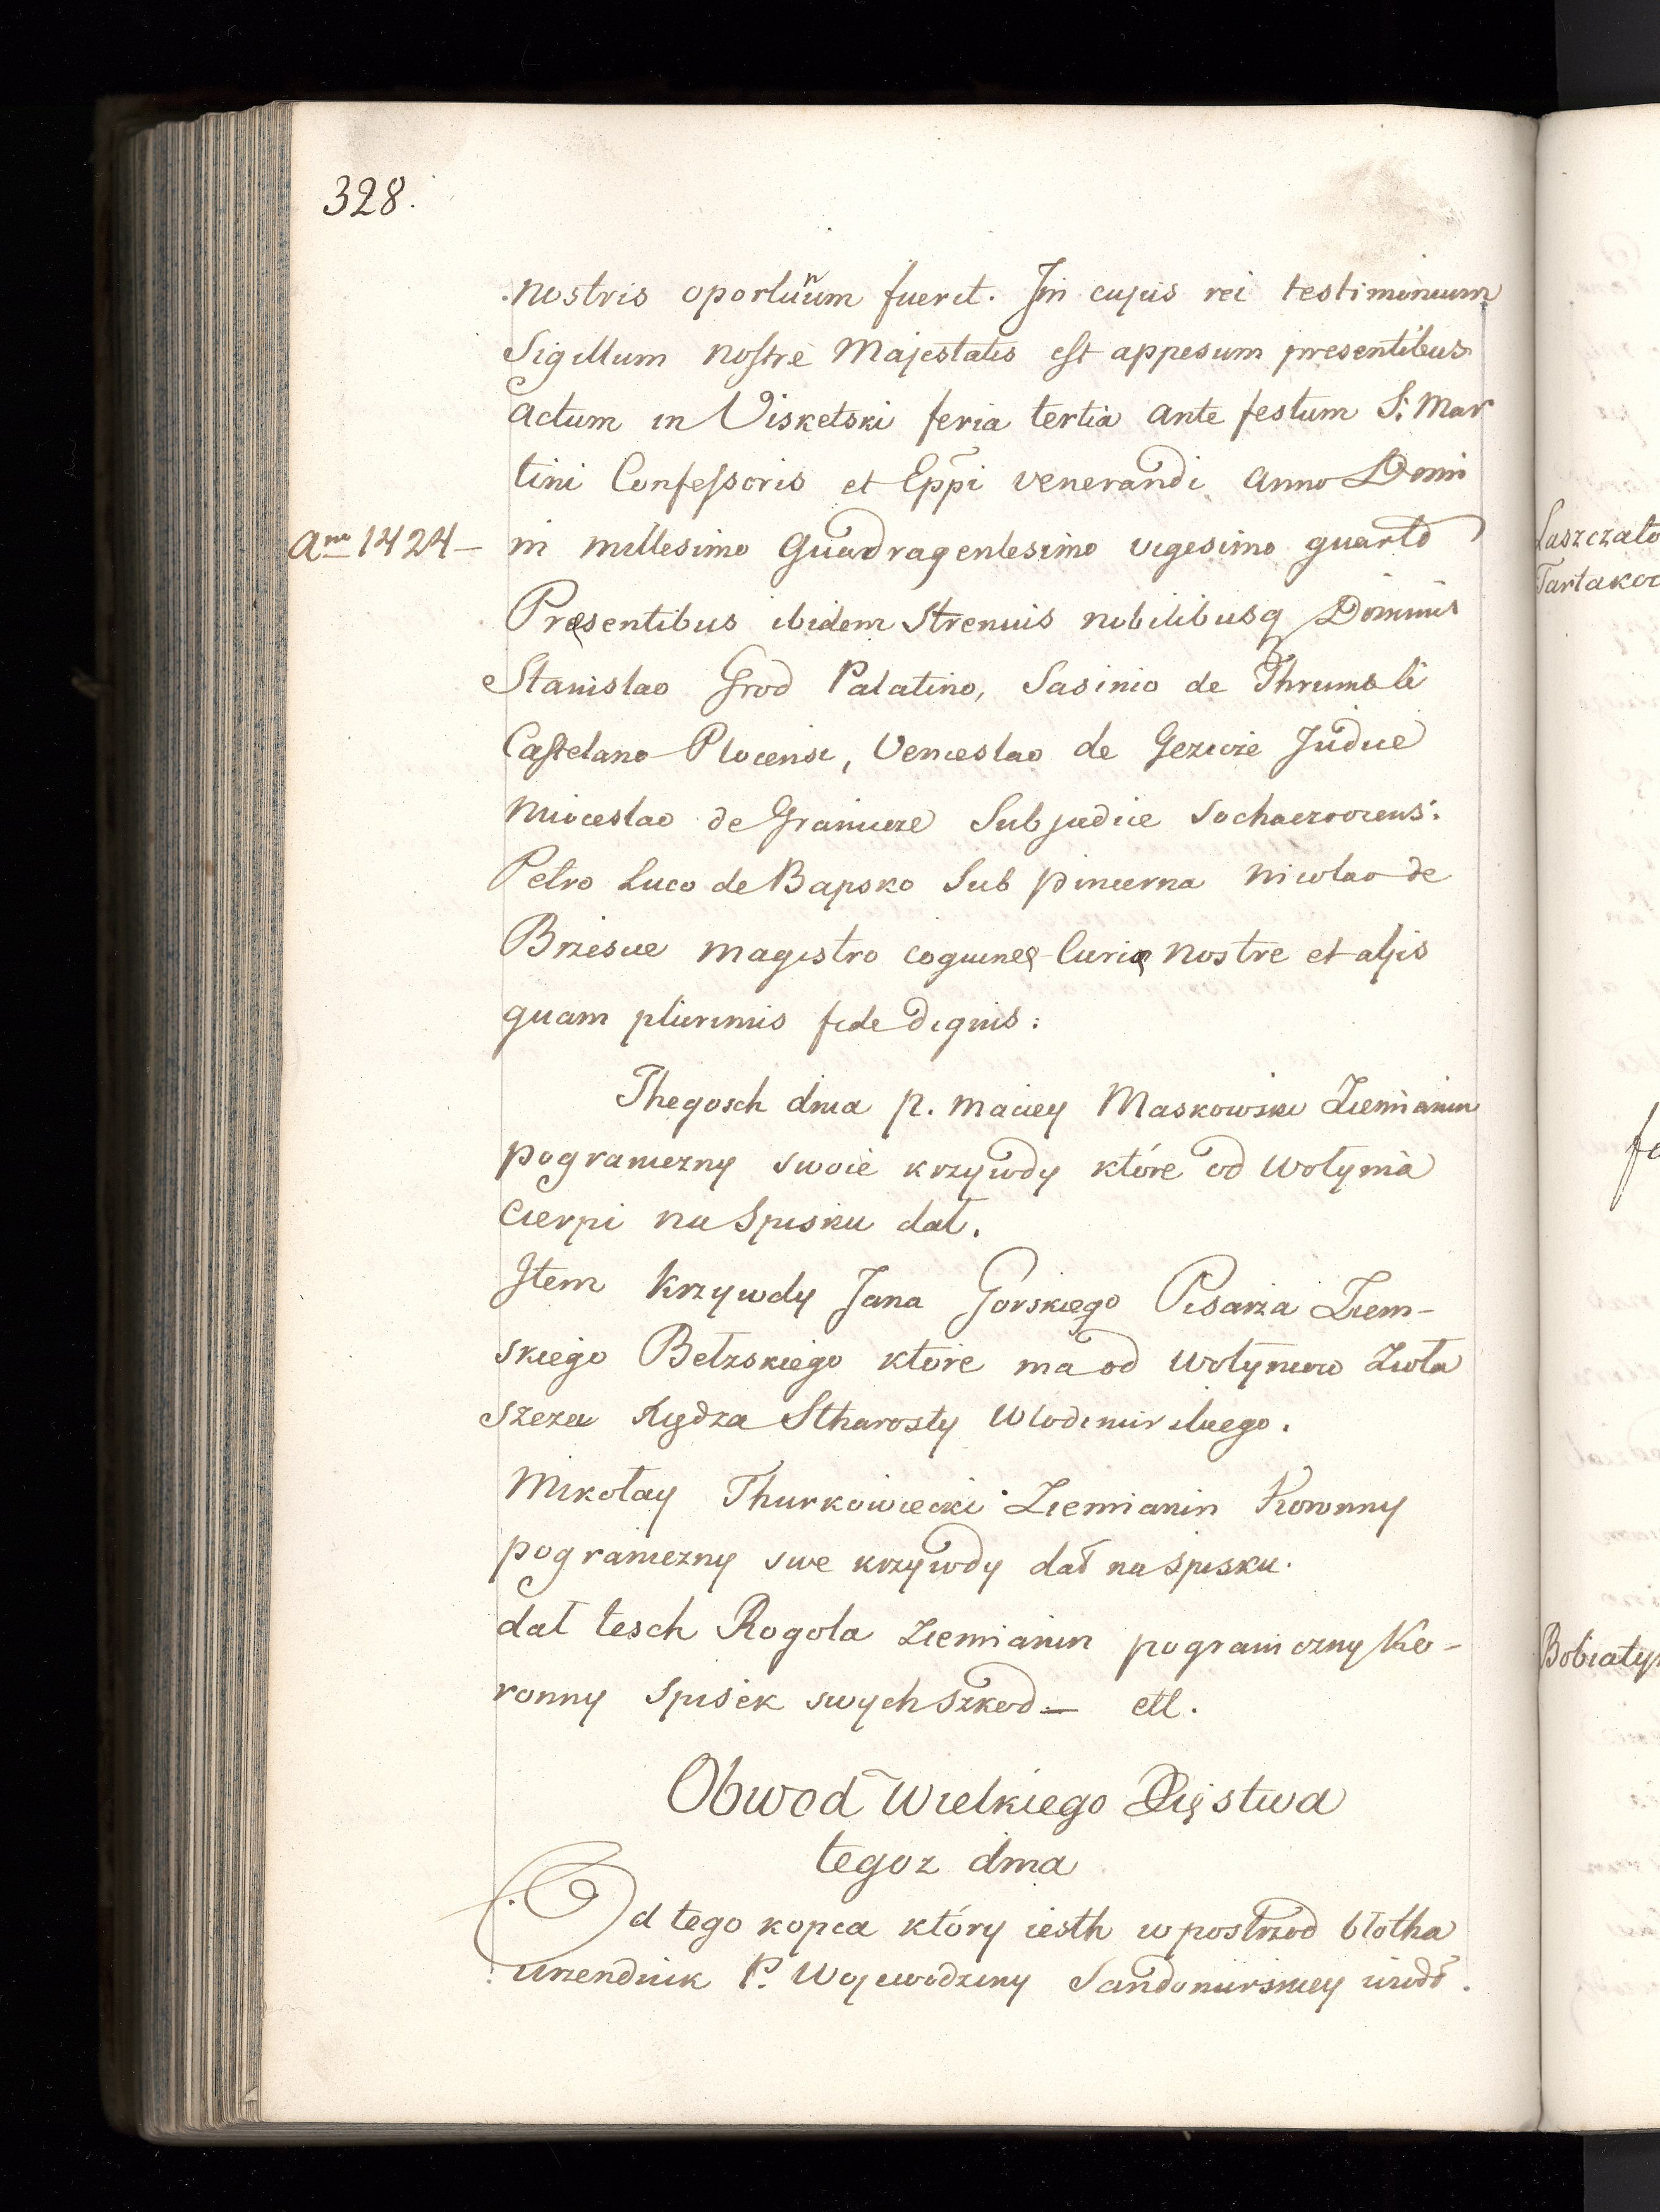 328.
nostris oportunum fuerit. In cujus rei testimonium
Sigillum nostre Majestatis est appesum presentibus
actum in Visketski feria tertia ante festum S. Mar
tini Confessoris et Eppi venerandi anno Domi
Ano 1424 — ni millesimo Quadragentesimo vigesimo quarto
Presentibus ibidem strenuis nobilibusq Dominis
Stanislao Grod Palatino, Sasinio de
Castelano Plocensi, Venceslao de Judice
Mioceslao de Subjudice
Petro Luco de Bapsko Sub pincerna Nicolao de
Brzesce magistro coquineę Curię nostre et alijs
quam plurimis fide dignis:
Thegosch dnia p. Maciey Maskowski Ziemianin
pograniczny swoie krzywdy które od Wołynia
cierpi na Spisku dał.
Item krzywdy Jana Gorskiego Pisarza Ziem-
skiego Bełzskiego które ma od Wołyncow Zwła
szcza Kydza Stharosty Wlodimirskiego.
Mikołay Thurkowiecki Ziemianin Koronny
pograniczny swe krzywdy dał na spisku.
dał tesch Rogola ziemianin pograniczny Ko-
ronny spisek swych szkod — ett.
Obwod Wielkiego Xięstwa
tegoz dnia
Od tego kopca który iesth w postrzod błotha
urzendnik P. Wojewodziny Sandomirskiey wiódł.
Laszczato
Tartakow
Bobiatyn